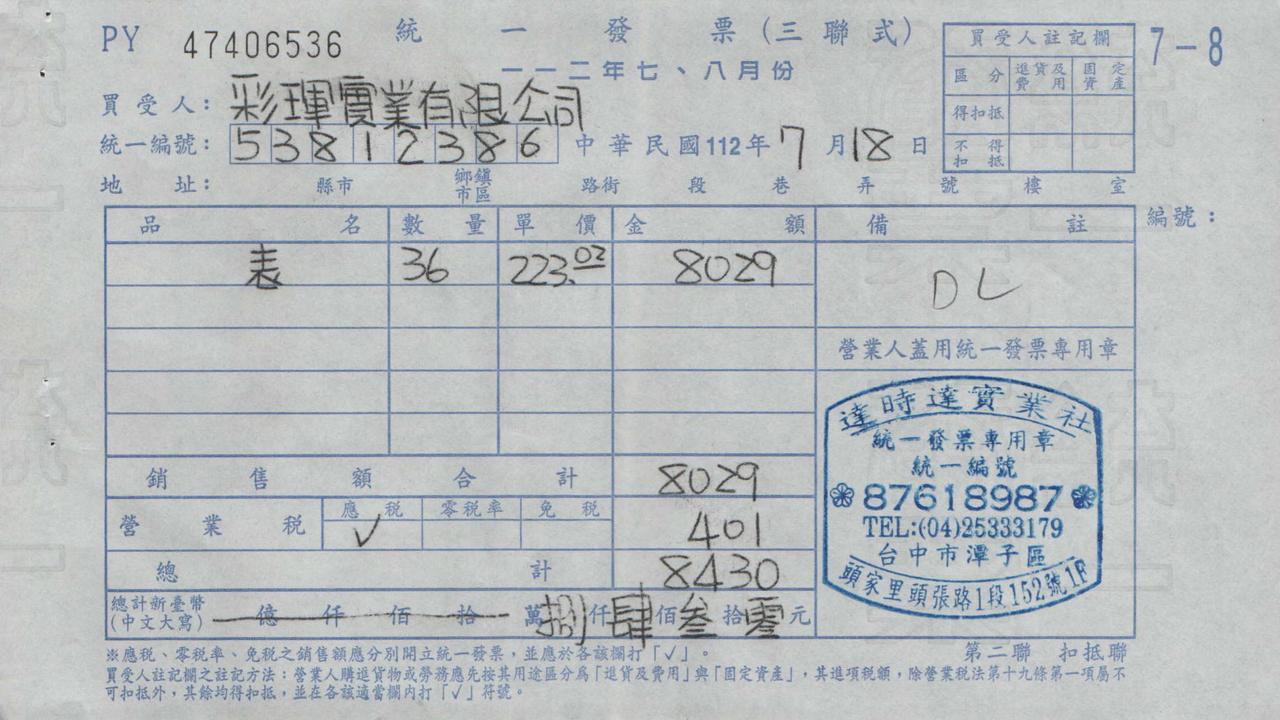 PY 47406536 統一發票(三聯式) 7-8
一一二年七、八月份
買受人註記欄
區分 進貨及費用 固定資產
得扣抵
不得扣抵
買受人：彩琿實業有限公司
統一編號：53812386 中華民國112年7月18日
地址： 縣市 鄉鎮市區 路街 段 巷 弄 號 樓 室
品名 數量 單價 金額 備註 編號：
表 36 223.02 8029 DL
營業人蓋用統一發票專用章
銷售額合計 8029
營業稅 應稅 零稅率 免稅 401
✓
總計 8430
總計新臺幣(中文大寫) 億 仟 佰 拾 萬 捌仟肆佰叁拾零元
達時達實業社
統一發票專用章
統一編號
87618987
TEL:(04)25333179
台中市潭子區
頭家里頭張路1段152號1F
※應稅、零稅率、免稅之銷售額應分別開立統一發票，並應於各該欄打「✓」。 第二聯 扣抵聯
買受人註記欄之註記方法：營業人購進貨物或勞務應先按其用途區分為「進貨及費用」與「固定資產」，其進項稅額，除營業稅法第十九條第一項屬不
可扣抵外，其餘均得扣抵，並在各該適當欄內打「✓」符號。